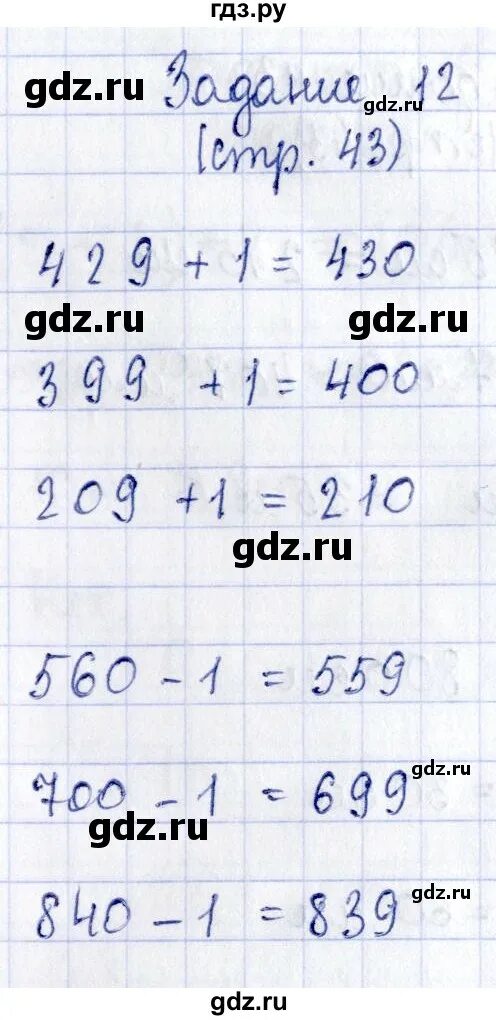 гдз.ру
gdz.ru
Задание 12
gdz.ru
(стр. 43)
429 + 1 = 430
gdz.ru gdz.ru
399 + 1 = 400
209 + 1 = 210
gdz.ru
560 - 1 = 559
gdz.ru
700 - 1 = 699
gdz.ru
gdz.ru
840 - 1 = 839
gdz.ru